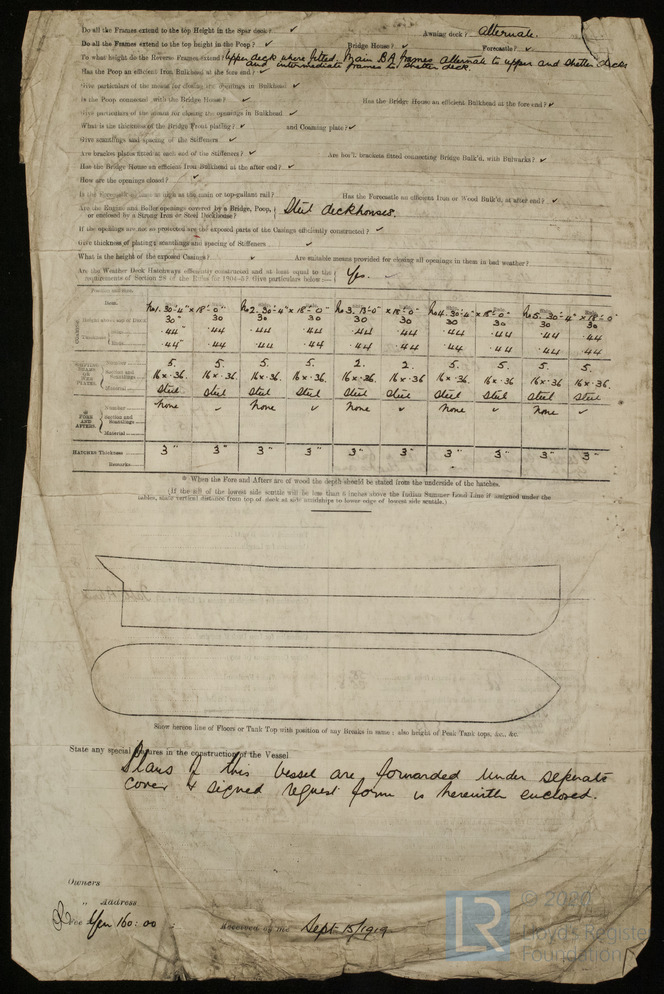 Do all the Frames extend to the top Height in the Spar deck? ✓ Awning deck? alternate.
Do all the Frames extend to the top height in the Poop? ✓ Bridge House? ✓ Forecastle? ✓
To what height do the Reverse Frames extend? Upper deck where fitted. Main B.A. frames alternate to upper and shelter decks
and intermediate frames to shelter deck.
Has the Poop an efficient Iron Bulkhead at the fore end? ✓
Give particulars of the means for closing the openings in Bulkhead ✓
Is the Poop connected with the Bridge House? ✓ Has the Bridge House an efficient Bulkhead at the fore end? ✓
Give particulars of the means for closing the openings in Bulkhead ✓
What is the thickness of the Bridge Front plating? ✓ and Coaming plate? ✓
Give scantlings and spacing of the Stiffeners ✓
Are bracket plates fitted at each end of the Stiffeners? ✓ Are hor'l. brackets fitted connecting Bridge Bulk'd. with Bulwarks? ✓
Has the Bridge House an efficient Iron Bulkhead at the after end? ✓
How are the openings closed? ✓
Is the Forecastle at least as high as the main or top-gallant rail? ✓ Has the Forecastle an efficient Iron or Wood Bulk'd. at after end? ✓
Are the Engine and Boiler openings covered by a Bridge, Poop, or enclosed by a Strong Iron or Steel Deckhouse? Steel deckhouses.
If the openings are not so protected are the exposed parts of the Casings efficiently constructed? ✓
Give thickness of plating; scantlings and spacing of Stiffeners ✓
What is the height of the exposed Casings? ✓ Are suitable means provided for closing all openings in them in bad weather? ✓
Are the Weather Deck Hatchways efficiently constructed and at least equal to the requirements of Section 28 of the Rules for 1904-5? Give particulars below:— Yes.
Position and size.
Item. No 1. 30'-4" x 18'-0" No 2. 30'-4" x 18'-0" No 3. 13'-0" x 18'-0" No 4. 30'-4" x 18'-0" No 5. 30'-4" x 18'-0"
COAMING Height above top of DECK 30" 30 30 30 30 30 30 30 30 30
Thickness .44" .44 .44 .44 .44 .44 .44 .44 .44 .44
.44" .44 .44 .44 .44 .44 .44 .44 .44 .44
SHIFTING BEAMS OR WEB PLATES. Number 5. 5. 5. 5. 2. 2. 5. 5. 5. 5.
Section and Scantlings 16 x .36. 16 x .36. 16 x .36. 16 x .36. 16 x .36 16 x .36 16 x .36. 16 x .36. 16 x .36 16 x .36.
Material Steel Steel Steel Steel Steel Steel Steel Steel Steel Steel
* FORE AND AFTERS. Number None ✓ None ✓ None ✓ None ✓ None ✓
Section and Scantlings
Material
HATCHES Thickness 3" 3" 3" 3" 3" 3" 3" 3" 3" 3"
Remarks
* When the Fore and Afters are of wood the depth should be stated from the underside of the hatches.
(If the sill of the lowest side scuttle will be less than 6 inches above the Indian Summer Load Line if assigned under the
tables, state vertical distance from top of deck at side amidships to lower edge of lowest side scuttle.)
Show hereon line of Floors or Tank Top with position of any Breaks in same; also height of Peak Tank tops, &c., &c.
State any special features in the construction of the Vessel
Plans of this vessel are forwarded under separate
cover & signed request form is herewith enclosed.
Owners
„ Address
Fee Yen 160:00 : Received by me Sept 15/1919.
LR © 2020
Lloyd's Register
Foundation